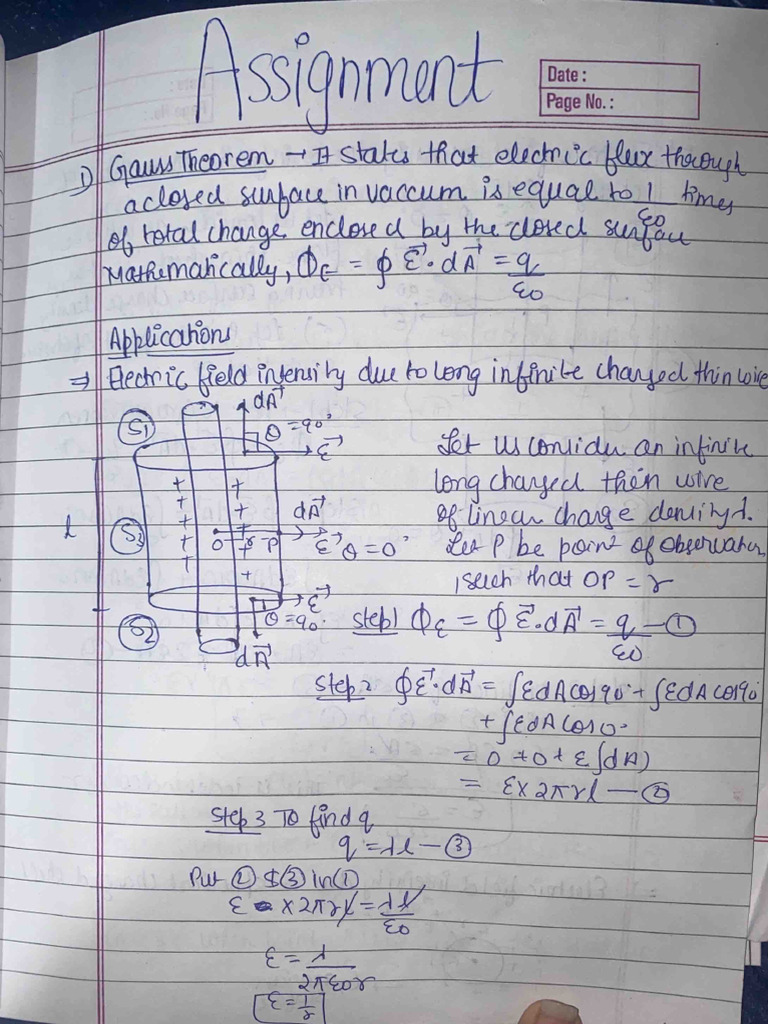 Assignment
Date :
Page No. :
1) Gauss Theorem → It states that electric flux through
a closed surface in vaccum is equal to 1/ε0 times
of total charge enclosed by the closed surface
Mathematically, ΦE = ∮ E⃗ · dA⃗ = q/ε0
Applications
⇒ Electric field intensity due to long infinite charged thin wire
dA⃗
S1
θ = 90°
E⃗
Let us consider an infinite
long charged thin wire
of linear charge density λ.
Let P be point of observation
such that OP = r
+ + + + +
+ + + + +
l
S3
O r P
dA⃗
E⃗ θ = 0°
E⃗
θ = 90°
S2
dA⃗
Step 1 ΦE = ∮ E⃗ · dA⃗ = q/ε0 — ①
Step 2 ∮ E⃗ · dA⃗ = ∫EdA cos90° + ∫EdA cos90°
+ ∫EdA cos0°
= 0 + 0 + E∫dA)
= E × 2πrl — ②
Step 3 To find q
q = λl — ③
Put ② $ ③ in ①
E × 2πrl = λl/ε0
E = λ/2πε0r
E = 1/r